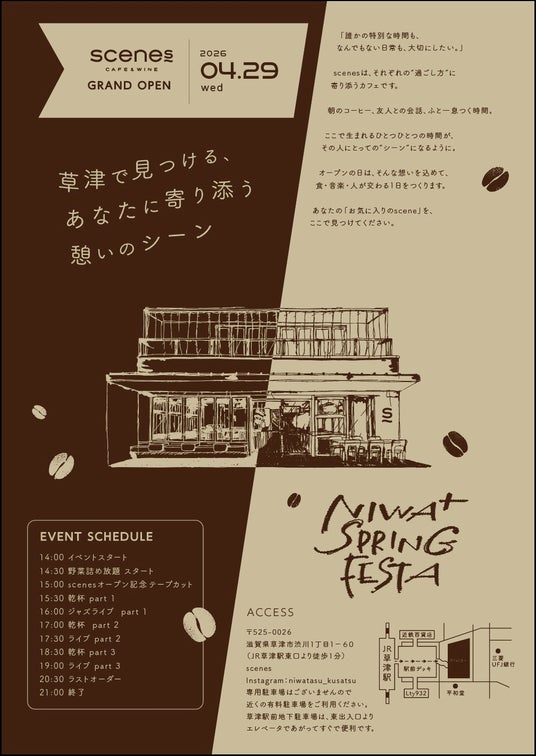 scenes
CAFE&WINE
GRAND OPEN
2026
04.29
wed
「誰かの特別な時間も、
なんでもない日常も、大切にしたい。」
scenesは、それぞれの“過ごし方”に
寄り添うカフェです。
朝のコーヒー、友人との会話、ふと一息つく時間。
ここで生まれるひとつひとつの時間が、
その人にとっての“シーン”になるように。
オープンの日は、そんな想いを込めて、
食・音楽・人が交わる1日をつくります。
あなたの「お気に入りのscene」を、
ここで見つけてください。
草津で見つける、
あなたに寄り添う
憩いのシーン
S
NIWA+
SPRING
FESTA
EVENT SCHEDULE
14:00 イベントスタート
14:30 野菜詰め放題 スタート
15:00 scenesオープン記念テープカット
15:30 乾杯 part 1
16:00 ジャズライブ part 1
17:00 乾杯 part 2
17:30 ライブ part 2
18:30 乾杯 part 3
19:00 ライブ part 3
20:30 ラストオーダー
21:00 終了
ACCESS
〒525-0026
滋賀県草津市渋川1丁目1−60
（JR草津駅東口より徒歩1分）
scenes
Instagram:niwatasu_kusatsu
専用駐車場はございませんので
近くの有料駐車場をご利用ください。
草津駅前地下駐車場は、東出入口より
エレベータであがってすぐで便利です。
近鉄百貨店
JR草津駅
駅前デッキ
Lty932
平和堂
三菱
UFJ銀行